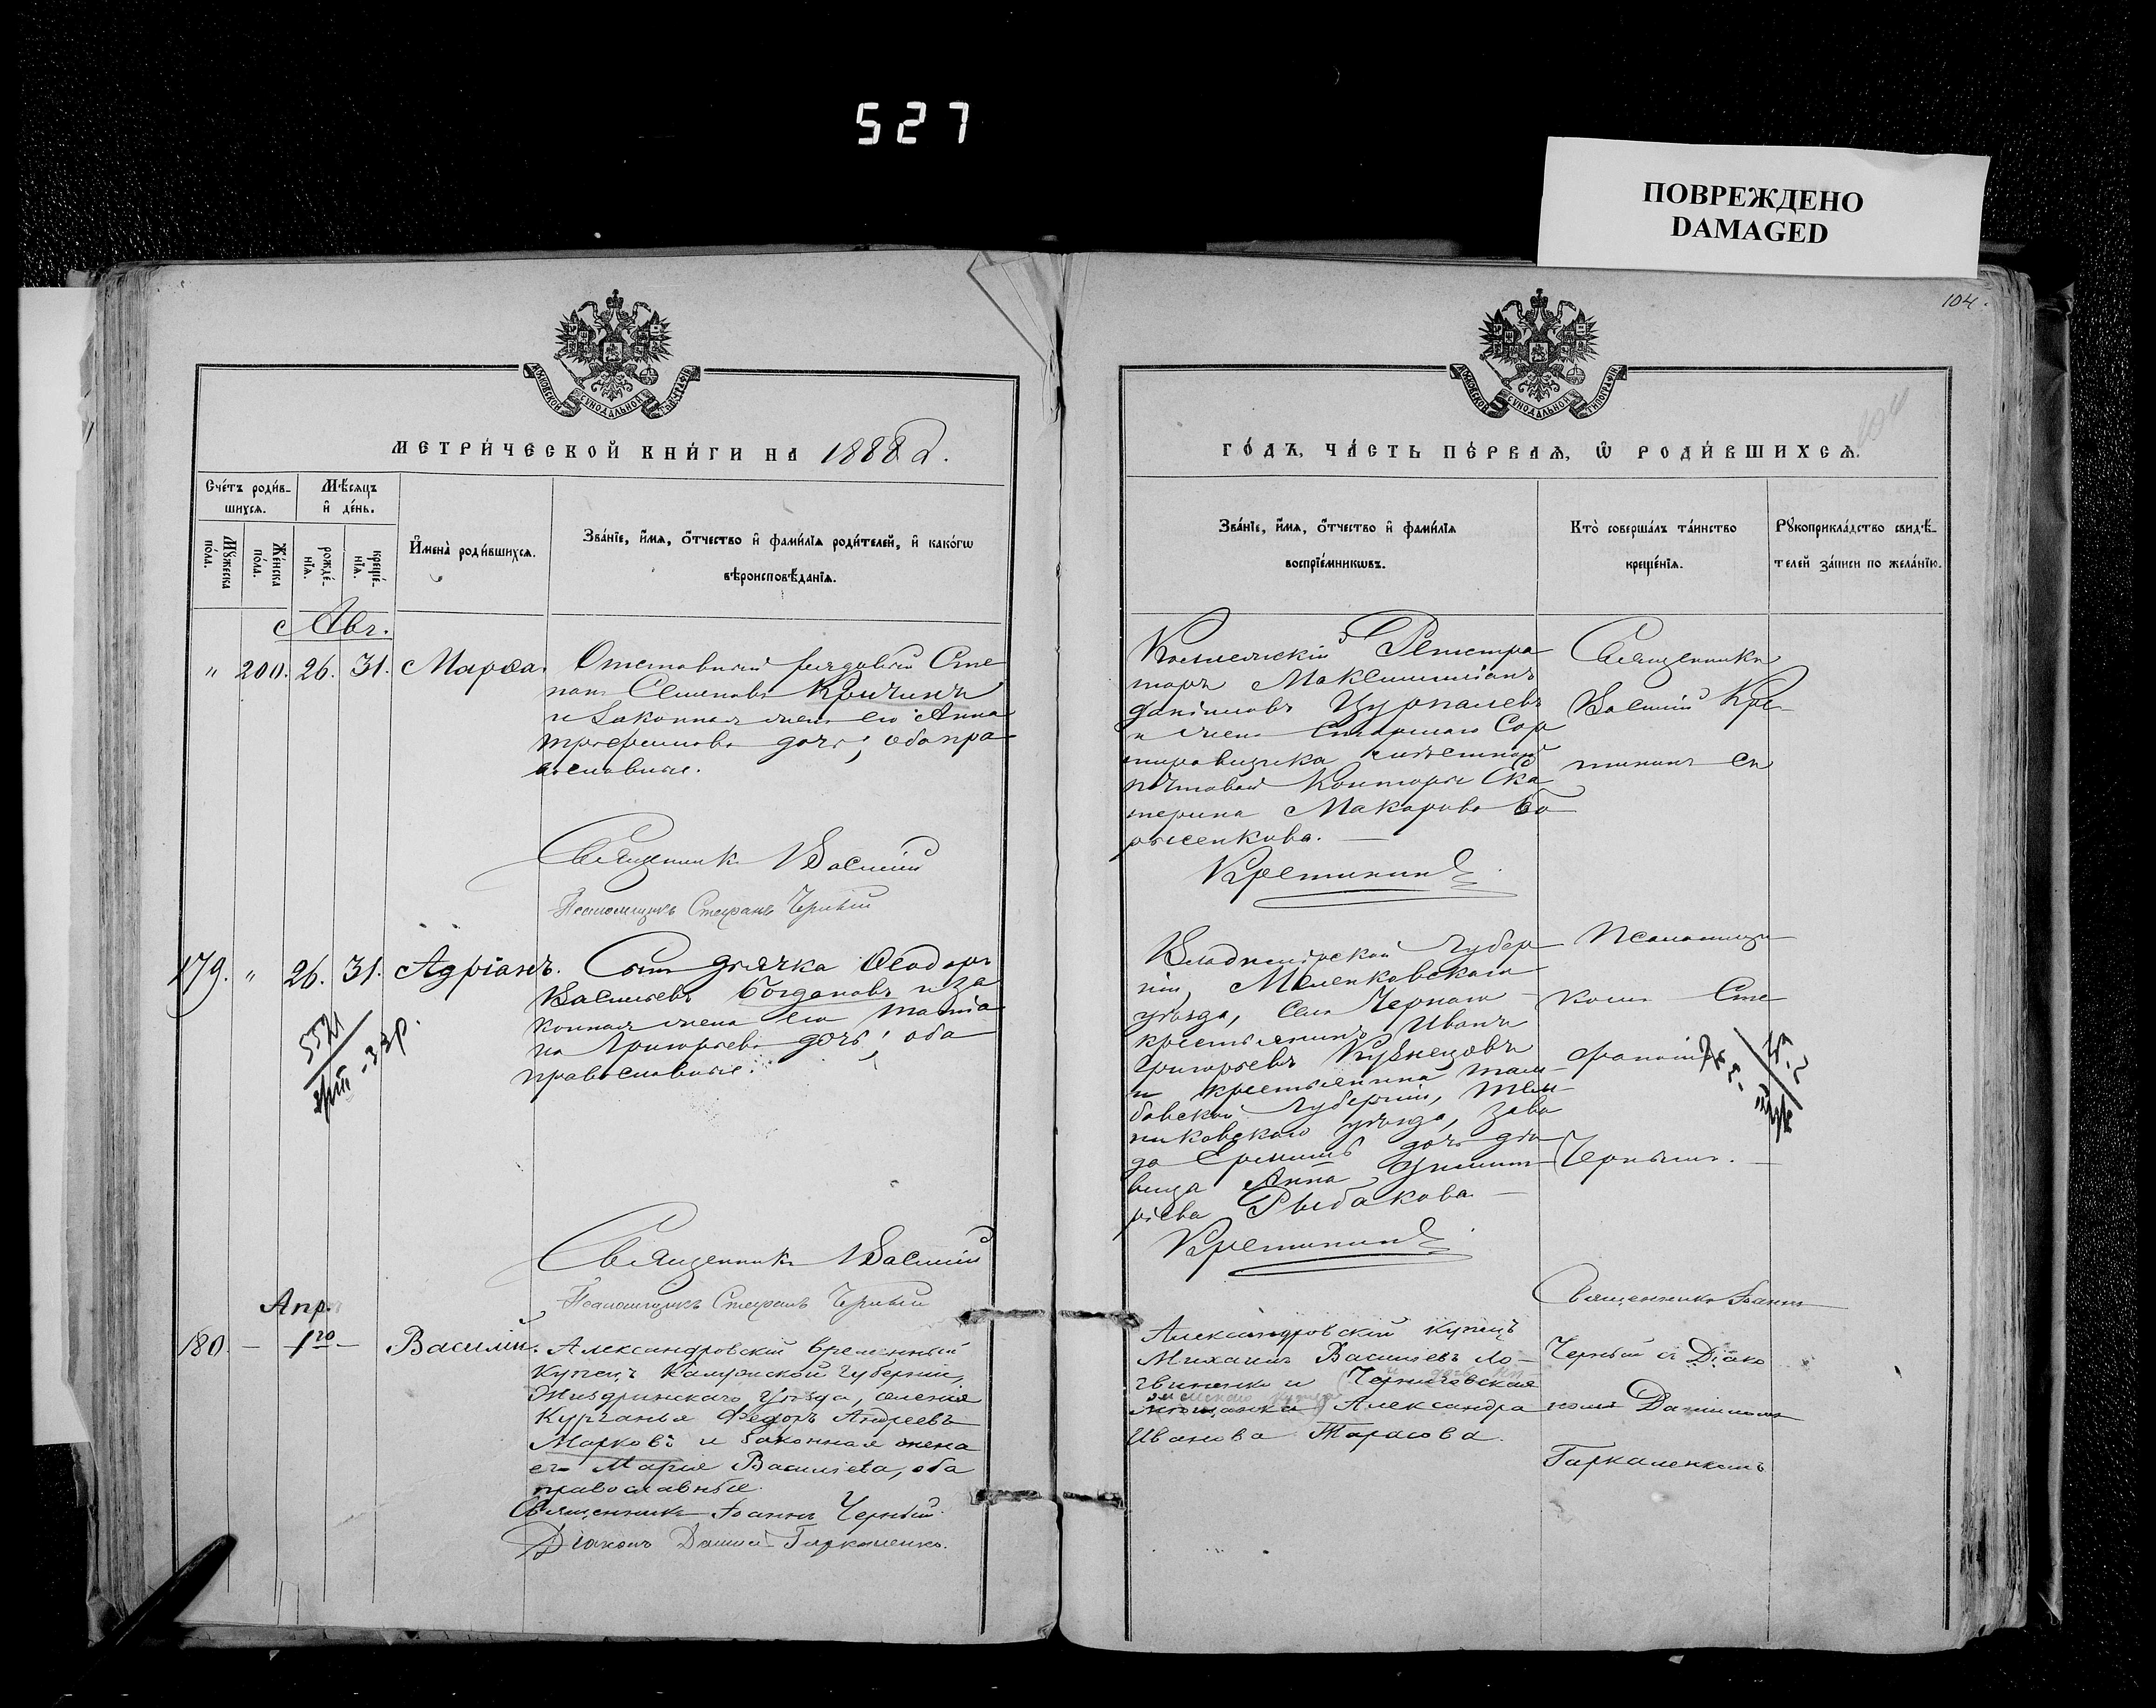 527
ПОВРЕЖДЕНО
DAMAGED
104.
МОСКОВСКОЙ СѴНОДАЛЬНОЙ ТИПОГРАФІИ
МЕТРИ́ЧЕСКОЙ КНИ́ГИ НА 1888 г.
Сче́тъ роди́в-
шихсѧ.
Мѣ́сѧцъ
и҆ де́нь.
Мꙋ́жеска
по́ла.
Же́нска
по́ла.
рожде́-
нїѧ.
креще́-
нїѧ.
И҆мена̀ роди́вшихсѧ.
Зва́нїе, и҆́мѧ, ѻ҆́тчество и҆ фами́лїѧ роди́телей, и҆ како́гѡ
вѣроисповѣ́данїѧ.
Авг.
" 200. 26. 31. Марѳа.
Отставный рядовый Сте
панъ Семеновъ Кричинъ
и законная жена его Анна
Трофимова дочь; оба пра
вославные.
Священникъ Василій
Псаломщикъ Стефанъ Черный
179. " 26. 31. Адріанъ.
Сынъ дьячка Ѳеодоръ
Васильевъ Богдановъ и за
конная жена его Татіа
на Григорьева дочь; оба
православные.
Священникъ Василій
Псаломщикъ Стефанъ Черный
Апр.
180. — 1 20 — Василій.
Александровскій временный
купецъ Калужской губерніи,
Жиздринскаго уѣзда, селенія
Курганья Федоръ Андреевъ
Марковъ и законная жена
его Марія Васильева, оба
православные.
Священникъ Іоаннъ Черный.
Діаконъ Даніилъ Гиркаленко.
МОСКОВСКОЙ СѴНОДАЛЬНОЙ ТИПОГРАФІИ
104
ГО́ДЪ, ЧА́СТЬ ПЕ́РВАѦ, Ѽ РОДИ́ВШИХСѦ.
Зва́нїе, и҆́мѧ, ѻ҆́тчество и҆ фами́лїѧ
воспрїе́мникѡвъ.
Кто̀ соверша́лъ та́инство
креще́нїѧ.
Рꙋкоприкла́дство свидѣ́-
телей за́писи по жела́нїю.
Коллежскій Регистра
торъ Максимиліанъ
Даніиловъ Цурпалевъ
и жена старшаго Сор
тировщика мѣстной
почтовой Конторы Ека
терина Макарова Бо
рисенкова. —
Кретининъ
Священникъ
Василій Кре
тининъ съ
Владимірской Губер
ніи, Меленковскаго
уѣзда, села Чернаго
крестьянинъ Иванъ
Григорьевъ Кузнецовъ
и крестьянина Там
бовской Губерніи, Тем
никовскаго уѣзда, заво
да Еремшъ дочь дѣ
вица Анна Димит
ріева Рыбакова —
Кретининъ
Псаломщи
комъ Сте
фаномъ
Чернымъ. —
Александровскій купецъ
Михаилъ Васильевъ Ло-
гвиненко и (Черниговская
мѣщанка) Александра
Иванова Тарасова.
Священникъ Іоаннъ
Черный съ Діако
номъ Даніиломъ
Гиркаленкомъ